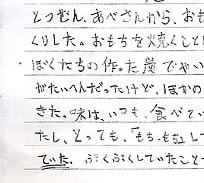 とつぜん、あべさんから、おも
くりした。おもちを焼くこと
ぼくたちの作った炭でやい
がたいへんだったけど、ほかの
きた。味は、いつも、食べてい
たし、とっても、「もち、もち」して
ていた。ぷくぷくしていたこと